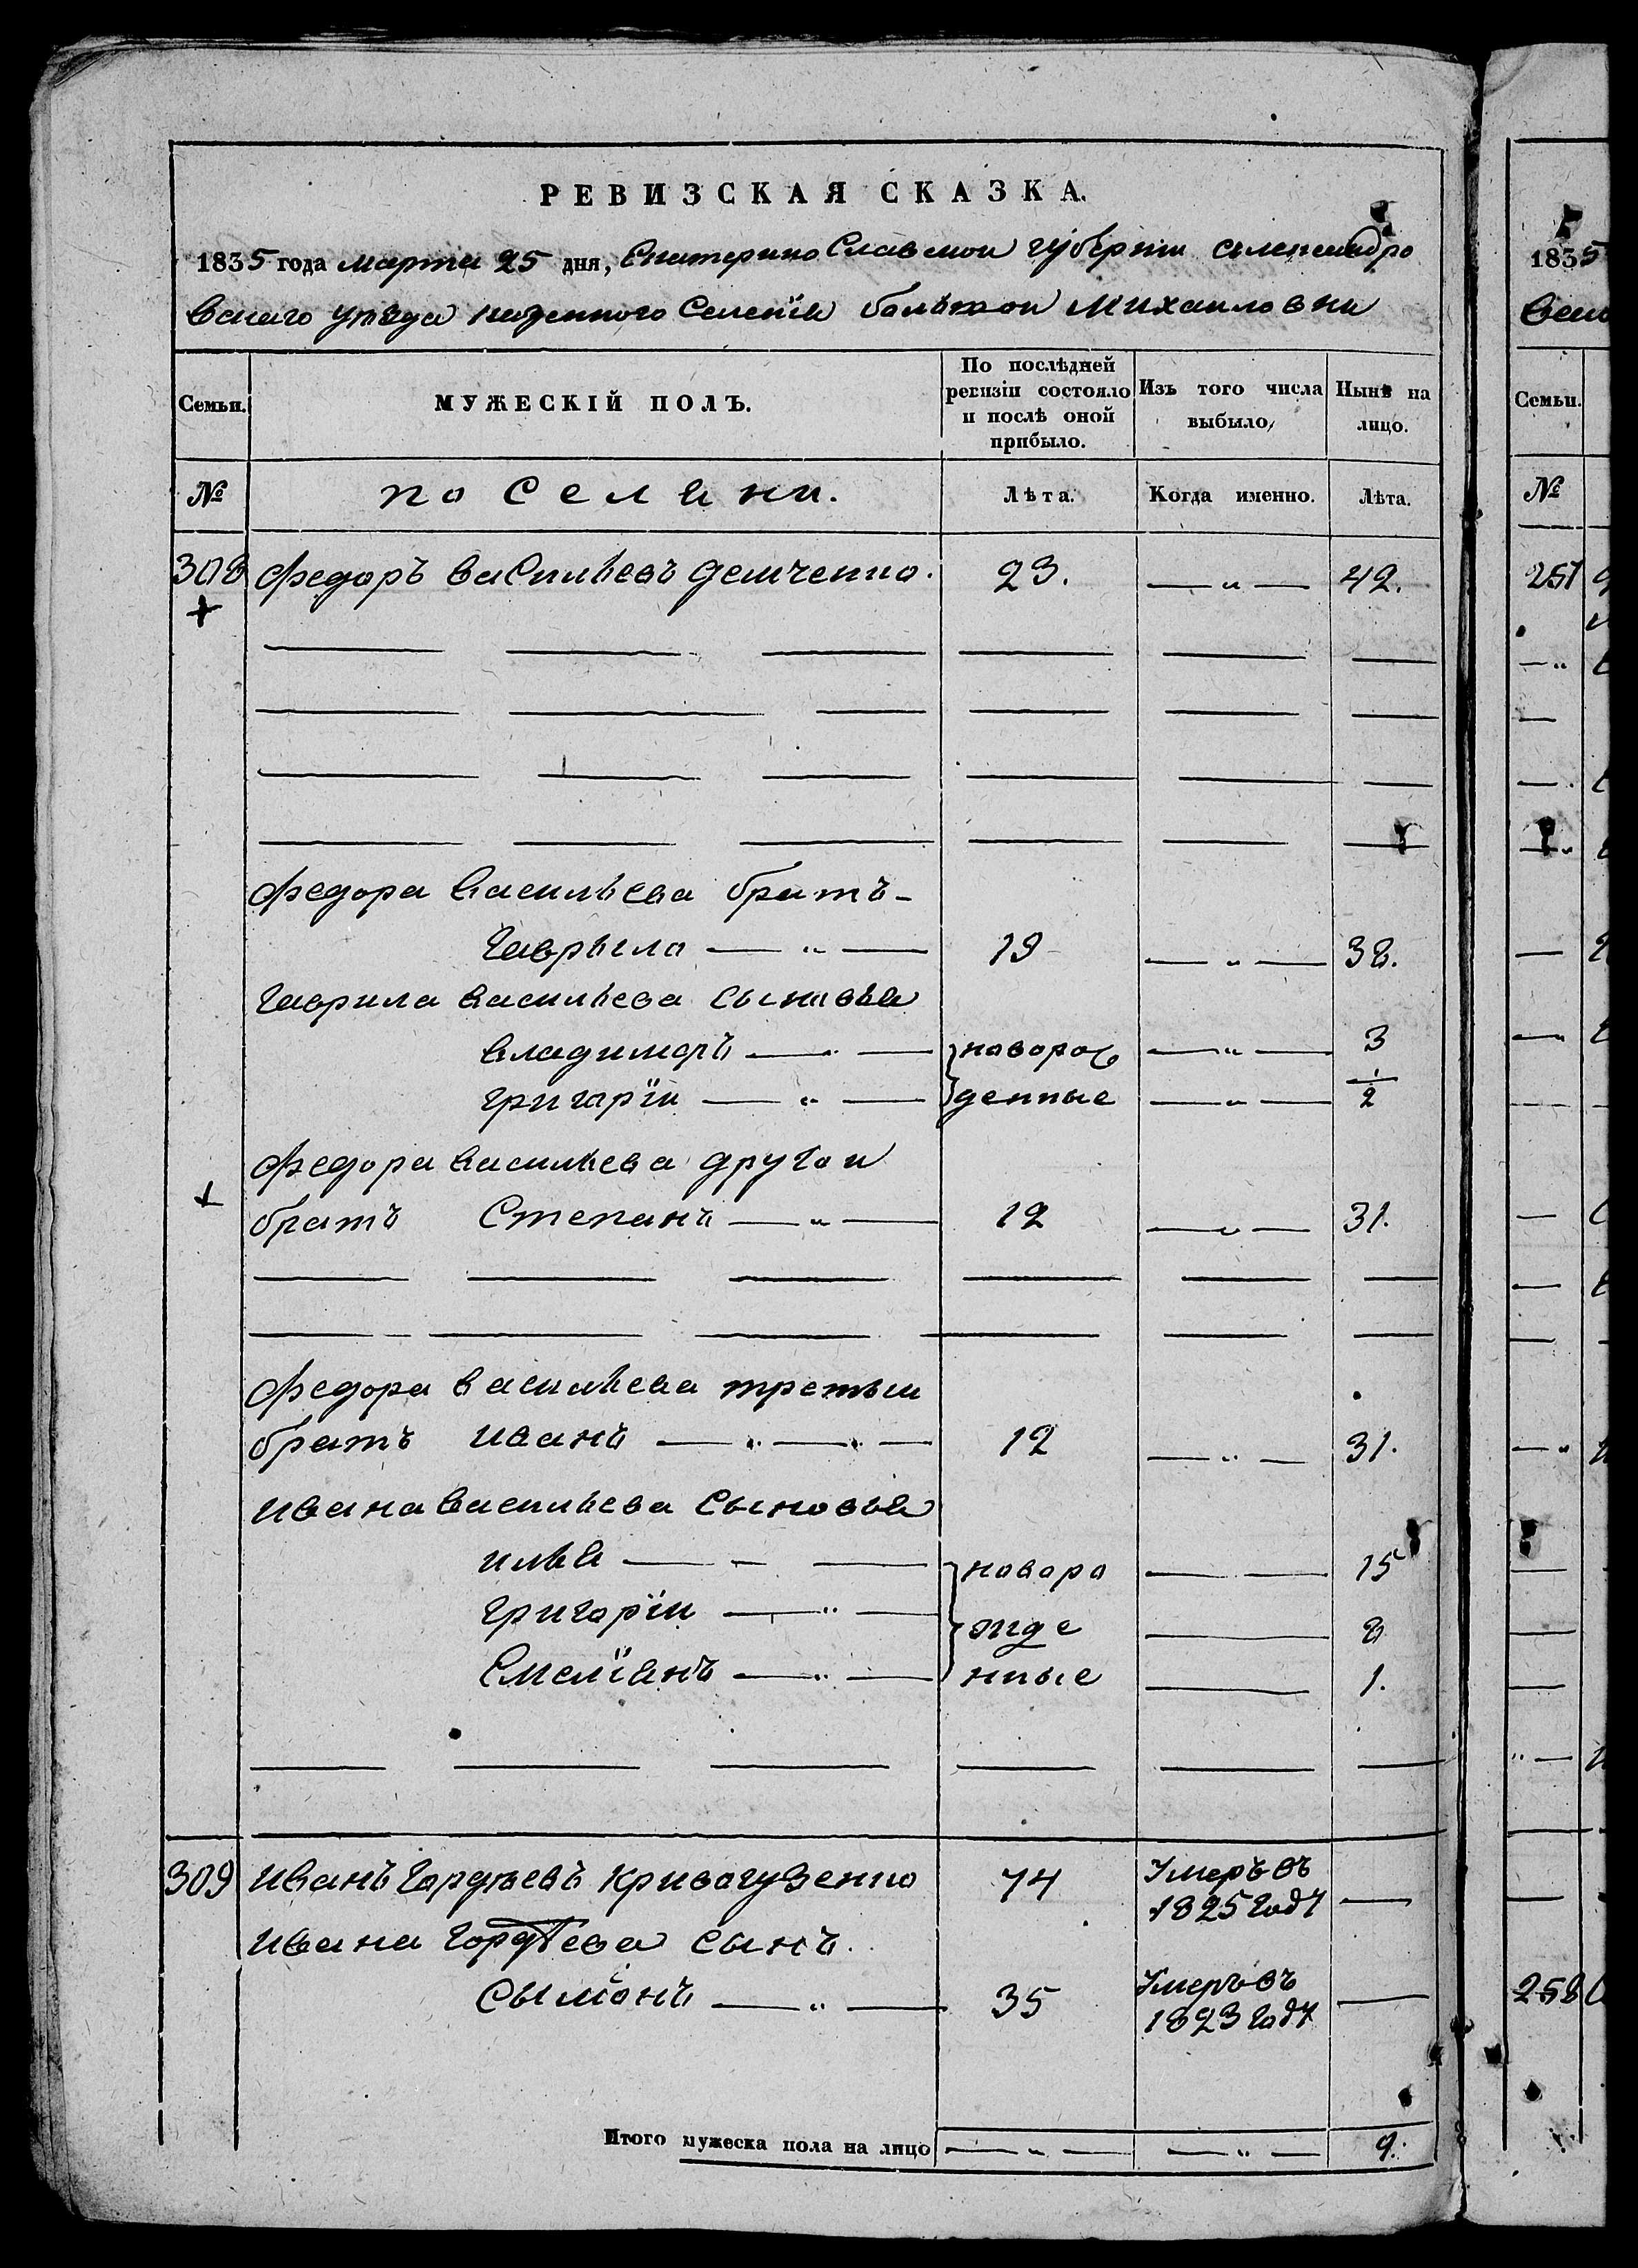 РЕВИЗСКАЯ СКАЗКА.
1835 года марта 25 дня, Екатерино Славской губерніи Александро
вскаго уезда казенного Селенія большой Михаиловки
Семьи.
МУЖЕСКІЙ ПОЛЪ.
По послѣдней ревизіи состояло и послѣ оной прибыло.
Изъ того числа выбыло,
Нынѣ на лицо.
№
поселяни.
Лѣта.
Когда именно.
Лѣта.
308 федоръ васильевъ демченко. 23. — " — 42.
федора васильева братъ-
гаврыло — " — 19 — " — 38.
гаврила васильева сыновья
владимеръ — " — новорож — " — 3
григорій — " — денные — " — 1/2
федора васильева другои
братъ Степанъ — " — 12 — " — 31.
федора васильева третьи
братъ иванъ — " — " — 12 — " — 31.
ивана васильева сыновья
илья — — — новоро — — 15
григорій — " — жде — 8
Емеліянъ — " — нные — 1.
309 иванъ гордѣевъ кривогузенко 74 Умеръ въ 1825 году —
ивана гордѣева сынъ.
Сымонъ — " — 35 Умеръ въ 1823 году —
Итого мужеска пола на лицо — " — — " — 9.
1835
Семьи.
№
257
258